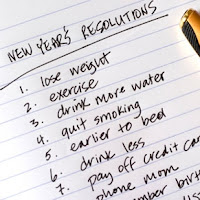 NEW YEAR'S RESOLUTIONS
1. lose weight
2. exercise
3. drink more water
4. quit smoking
5. earlier to bed
6. drink less
7. pay off credit car
phone mom
ember birt